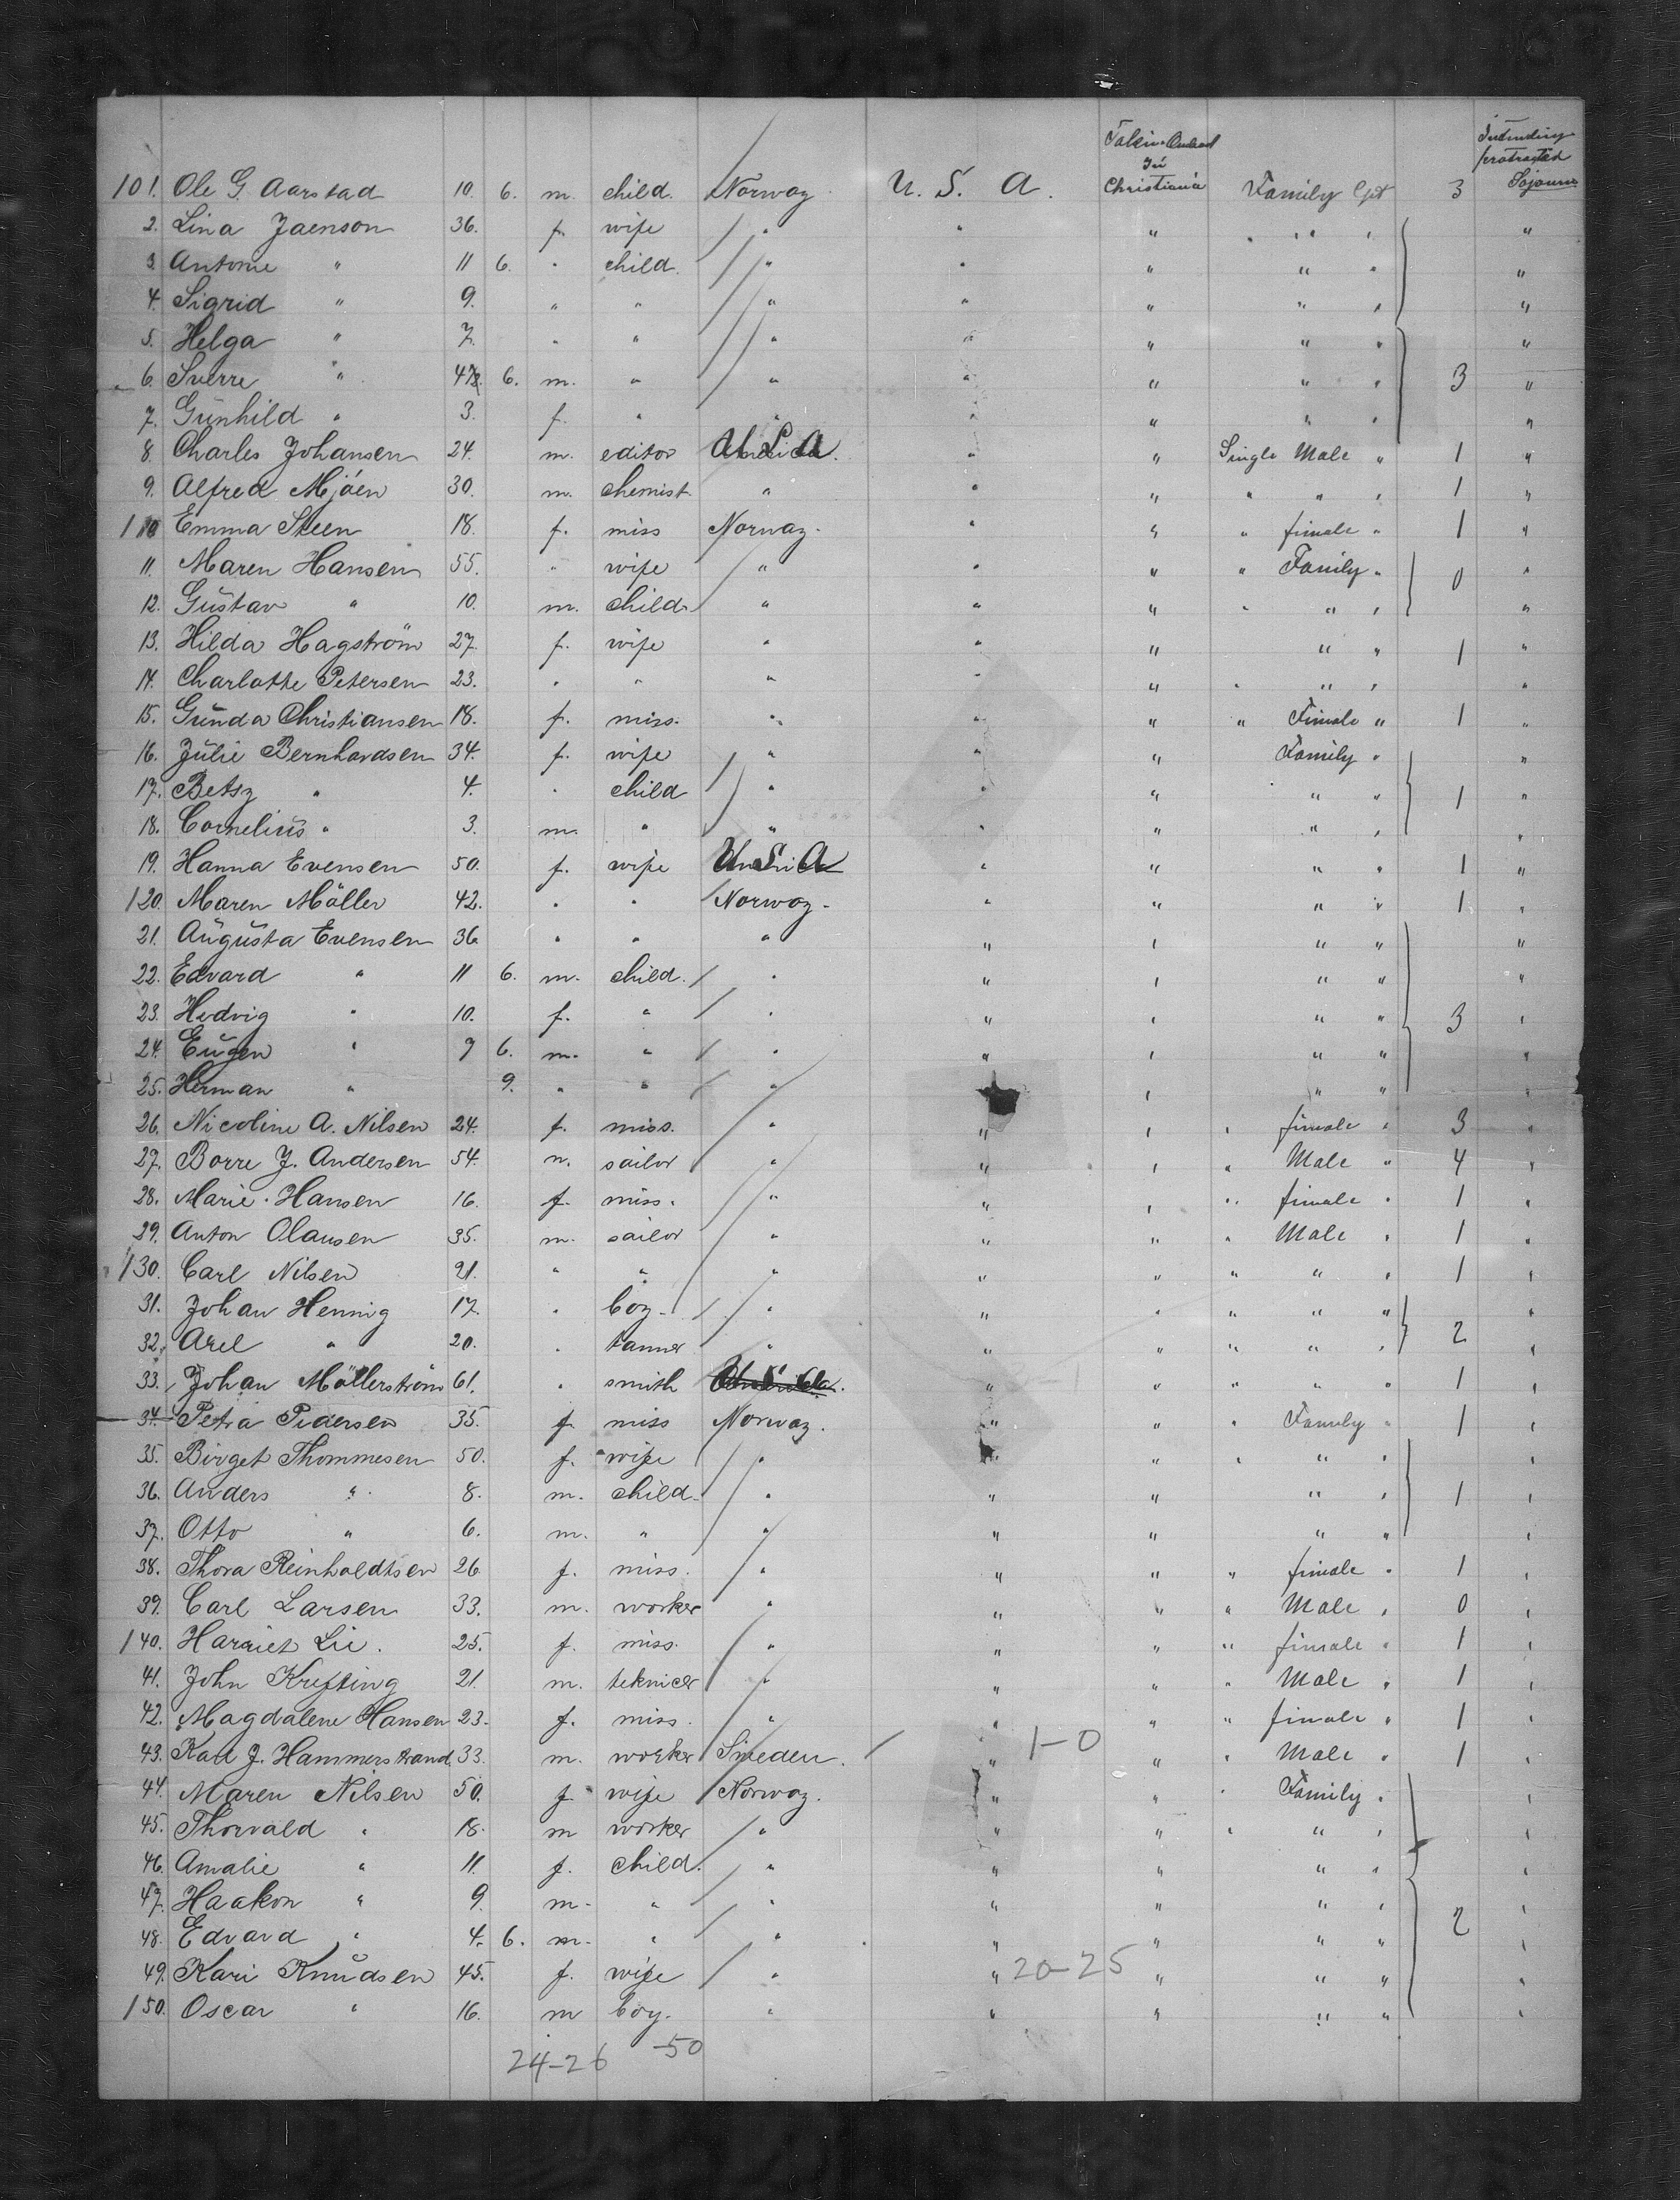 Taken Onboard In Christiania
Intending protracted Sojourn
101. Ole G. Aarstad 10. 6. m. child. Norway. U. S. A. Family Cpt 3
2. Lina Jaenson 36. f. wife " " " " " "
3. Antonie " 11 6. " child. " " " " " "
4. Sigrid " 9. " " " " " " " "
5. Helga " 7. " " " " " " " "
6. Sverre " 4 6. m. " " " " " " 3 "
7. Gunhild " 3. f. " " " " " " "
8. Charles Johansen 24. m. editor U.S.A. " " Single Male " 1 "
9. Alfred Mjöen 30. m. chemist. " " " " " " 1 "
110 Emma Steen 18. f. miss Norway. " " " female " 1 "
11. Maren Hansen 55. " wife " " " " Family " 0 "
12. Gustav " 10. m. child " " " " " " "
13. Hilda Hagström 27. f. wife " " " " " 1 "
14. Charlotte Petersen 23. " " " " " " " " "
15. Gunda Christiansen 18. f. miss. " " " " Female " 1 "
16. Julie Bernhardsen 34. f. wife " " " Family " "
17. Betsy " 4. " child " " " " " 1 "
18. Cornelius " 3. m. " " " " " " "
19. Hanna Evensen 50. f. wife U S A " " " " 1 "
120. Maren Möller 42. " " Norway. " " " " 1 "
21. Augusta Evensen 36 " " " " " " " "
22. Edvard " 11 6. m. child. " " " " " "
23. Hedvig " 10. f. " " " " " " 3 "
24. Eugen " 7 6. m. " " " " " " "
25. Herman " 9. " " " " " " "
26. Nicoline A. Nilsen 24. f. miss. " " " " female " 3 "
27. Borre J. Andersen 54. m. sailor " " " " Male " 4 "
28. Marie Hansen 16. f. miss. " " " " female " 1 "
29. Anton Olausen 35. m. sailor " " " " Male " 1 "
130. Carl Nilsen 21. " " " " " " " " 1 "
31. Johan Hennig 17. " boy. " " " " " " "
32. Axel " 20. " tanner " " " " " " 2 "
33. Johan Möllerström 61. " smith " " " " " 1 "
34. Petra Pedersen 35. f. miss Norway. " " " Family " 1 "
35. Birget Thommesen 50. f. wife " " " " " " "
36. Anders " 8. m. child. " " " " " 1 "
37. Otto " 6. m. " " " " " " "
38. Thora Reinholdtsen 26 f. miss. " " " " female " 1 "
39. Carl Larsen 33. m. worker " " " " Male " 0 "
140. Harriet Lie. 25. f. miss. " " " " female " 1 "
41. John Krefting 21. m. teknicer " " " " Male " 1 "
42. Magdalene Hansen 23. f. miss. " " " " female " 1 "
43. Karl J. Hammerstrand 33. m. worker Sweden. " 1-0 " " Male " 1 "
44. Maren Nilsen 50. f. wife Norway. " " " Family " "
45. Thorvald " 18. m worker " " " " " " "
46. Amalie " 11. f. child. " " " " " "
47. Haakon " 9. m. " " " " " " "
48. Edvard " 4. 6. m. " " " " " " 2 "
49. Kari Knudsen 45. f. wife " " 20-25 " " " "
150. Oscar " 16. m boy. " " " " " "
24-26 -50